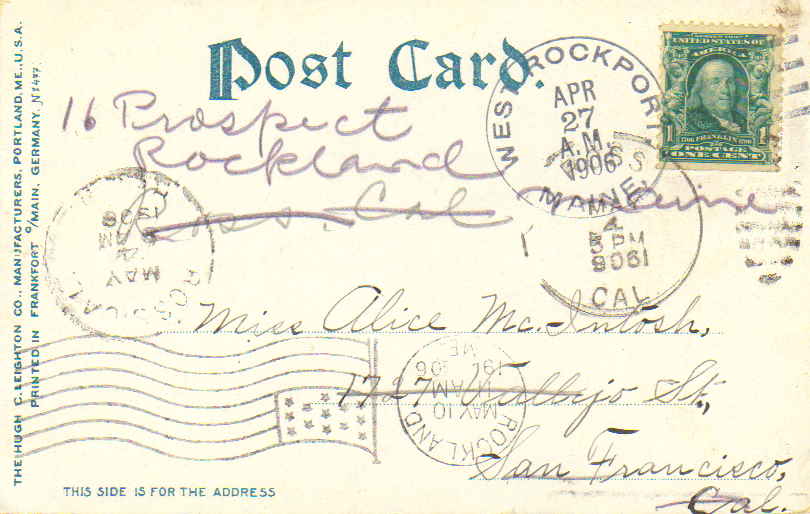 Post Card.
UNITED STATES OF
AMERICA
1706 FRANKLIN 1790
1 POSTAGE 1
ONE CENT
WEST ROCKPORT
APR
27
A.M.
1906
MAINE
16 Prospect
Rockland
Cal
Maine
4
5 PM
1906
CAL
MAY
1906
Miss Alice McIntosh,
1727 Vallejo St.,
San Francisco,
Cal.
ROCKLAND
MAY 10
AM
1906
ME
THIS SIDE IS FOR THE ADDRESS
THE HUGH C. LEIGHTON CO., MANUFACTURERS, PORTLAND, ME., U.S.A.
PRINTED IN FRANKFORT o/MAIN, GERMANY.